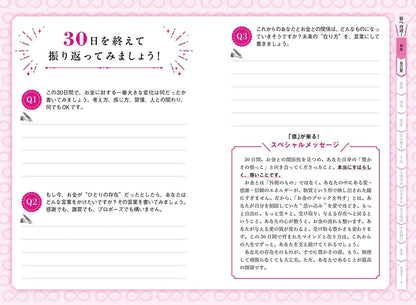 30日を終えて
振り返ってみましょう！
Q1
この30日間で、お金に対する一番大きな変化は何だったか
書いてみましょう。考え方、感じ方、習慣、人との関わり、
何でもOKです。
Q2
もし今、お金が“ひとりの存在”だったとしたら、あなたは
どんな言葉をかけたいですか？その言葉を書いてみましょう。
感謝でも、謝罪でも、プロポーズでも構いません。
Q3
これからのあなたとお金との関係は、どんなものになっ
ていきそうですか？未来の“在り方”を、言葉にして
書きましょう。
「億」が来る！
スペシャルメッセージ
30日間、お金との関係性を見つめ、あなた自身の「豊か
さの根っこ」と向き合ってくださったこと、本当にすばらし
く、尊いことです。
お金とは「外側のもの」ではなく、あなたの中にある愛・
感謝・信頼のエネルギーが、物質という形で映し出された鏡
にすぎません。だから、「お金のブロックを外す」とは、あ
なたが自分を制限していた“思い込み”を愛でほどき、もっ
と自由に、もっと堂々と、受け取り、与える存在へと戻ると
いうこと。あなたの心が整うと、お金の流れも整います。あ
なたが与える愛の質が変わると、受け取る豊かさも変わりま
す。この30日間で育まれたマインドと在り方は、これから
の人生でずっと、あなたを支え続けてくれるでしょう。
あなたの存在そのものが、すでに豊かさの源。もう、無理
して頑張らなくても大丈夫。ただ、あなたであることが最高
の価値です。